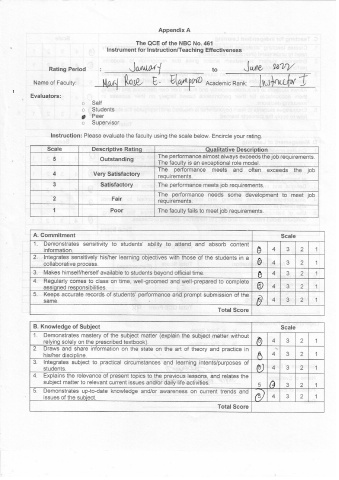 Appendix A
The QCE of the NBC No. 461
Instrument for Instruction/Teaching Effectiveness
Rating Period : January to June 2022
Name of Faculty: Mary Rose E. Academic Rank: Instructor I
Evaluators:
Self
Students
Peer
Supervisor
Instruction: Please evaluate the faculty using the scale below. Encircle your rating.
Scale Descriptive Rating Qualitative Description
5 Outstanding The performance almost always exceeds the job requirements. The faculty is an exceptional role model.
4 Very Satisfactory The performance meets and often exceeds the job requirements.
3 Satisfactory The performance meets job requirements.
2 Fair The performance needs some development to meet job requirements.
1 Poor The faculty fails to meet job requirements.
A. Commitment Scale
1. Demonstrates sensitivity to students' ability to attend and absorb content information. 5 4 3 2 1
2. Integrates sensitively his/her learning objectives with those of the students in a collaborative process. 5 4 3 2 1
3. Makes himself/herself available to students beyond official time. 5 4 3 2 1
4. Regularly comes to class on time, well-groomed and well-prepared to complete assigned responsibilities. 5 4 3 2 1
5. Keeps accurate records of students' performance and prompt submission of the same. 5 4 3 2 1
Total Score
B. Knowledge of Subject Scale
1. Demonstrates mastery of the subject matter (explain the subject matter without relying solely on the prescribed textbook). 5 4 3 2 1
2. Draws and share information on the state on the art of theory and practice in his/her discipline. 5 4 3 2 1
3. Integrates subject to practical circumstances and learning intents/purposes of students. 5 4 3 2 1
4. Explains the relevance of present topics to the previous lessons, and relates the subject matter to relevant current issues and/or daily life activities. 5 4 3 2 1
5. Demonstrates up-to-date knowledge and/or awareness on current trends and issues of the subject. 5 4 3 2 1
Total Score